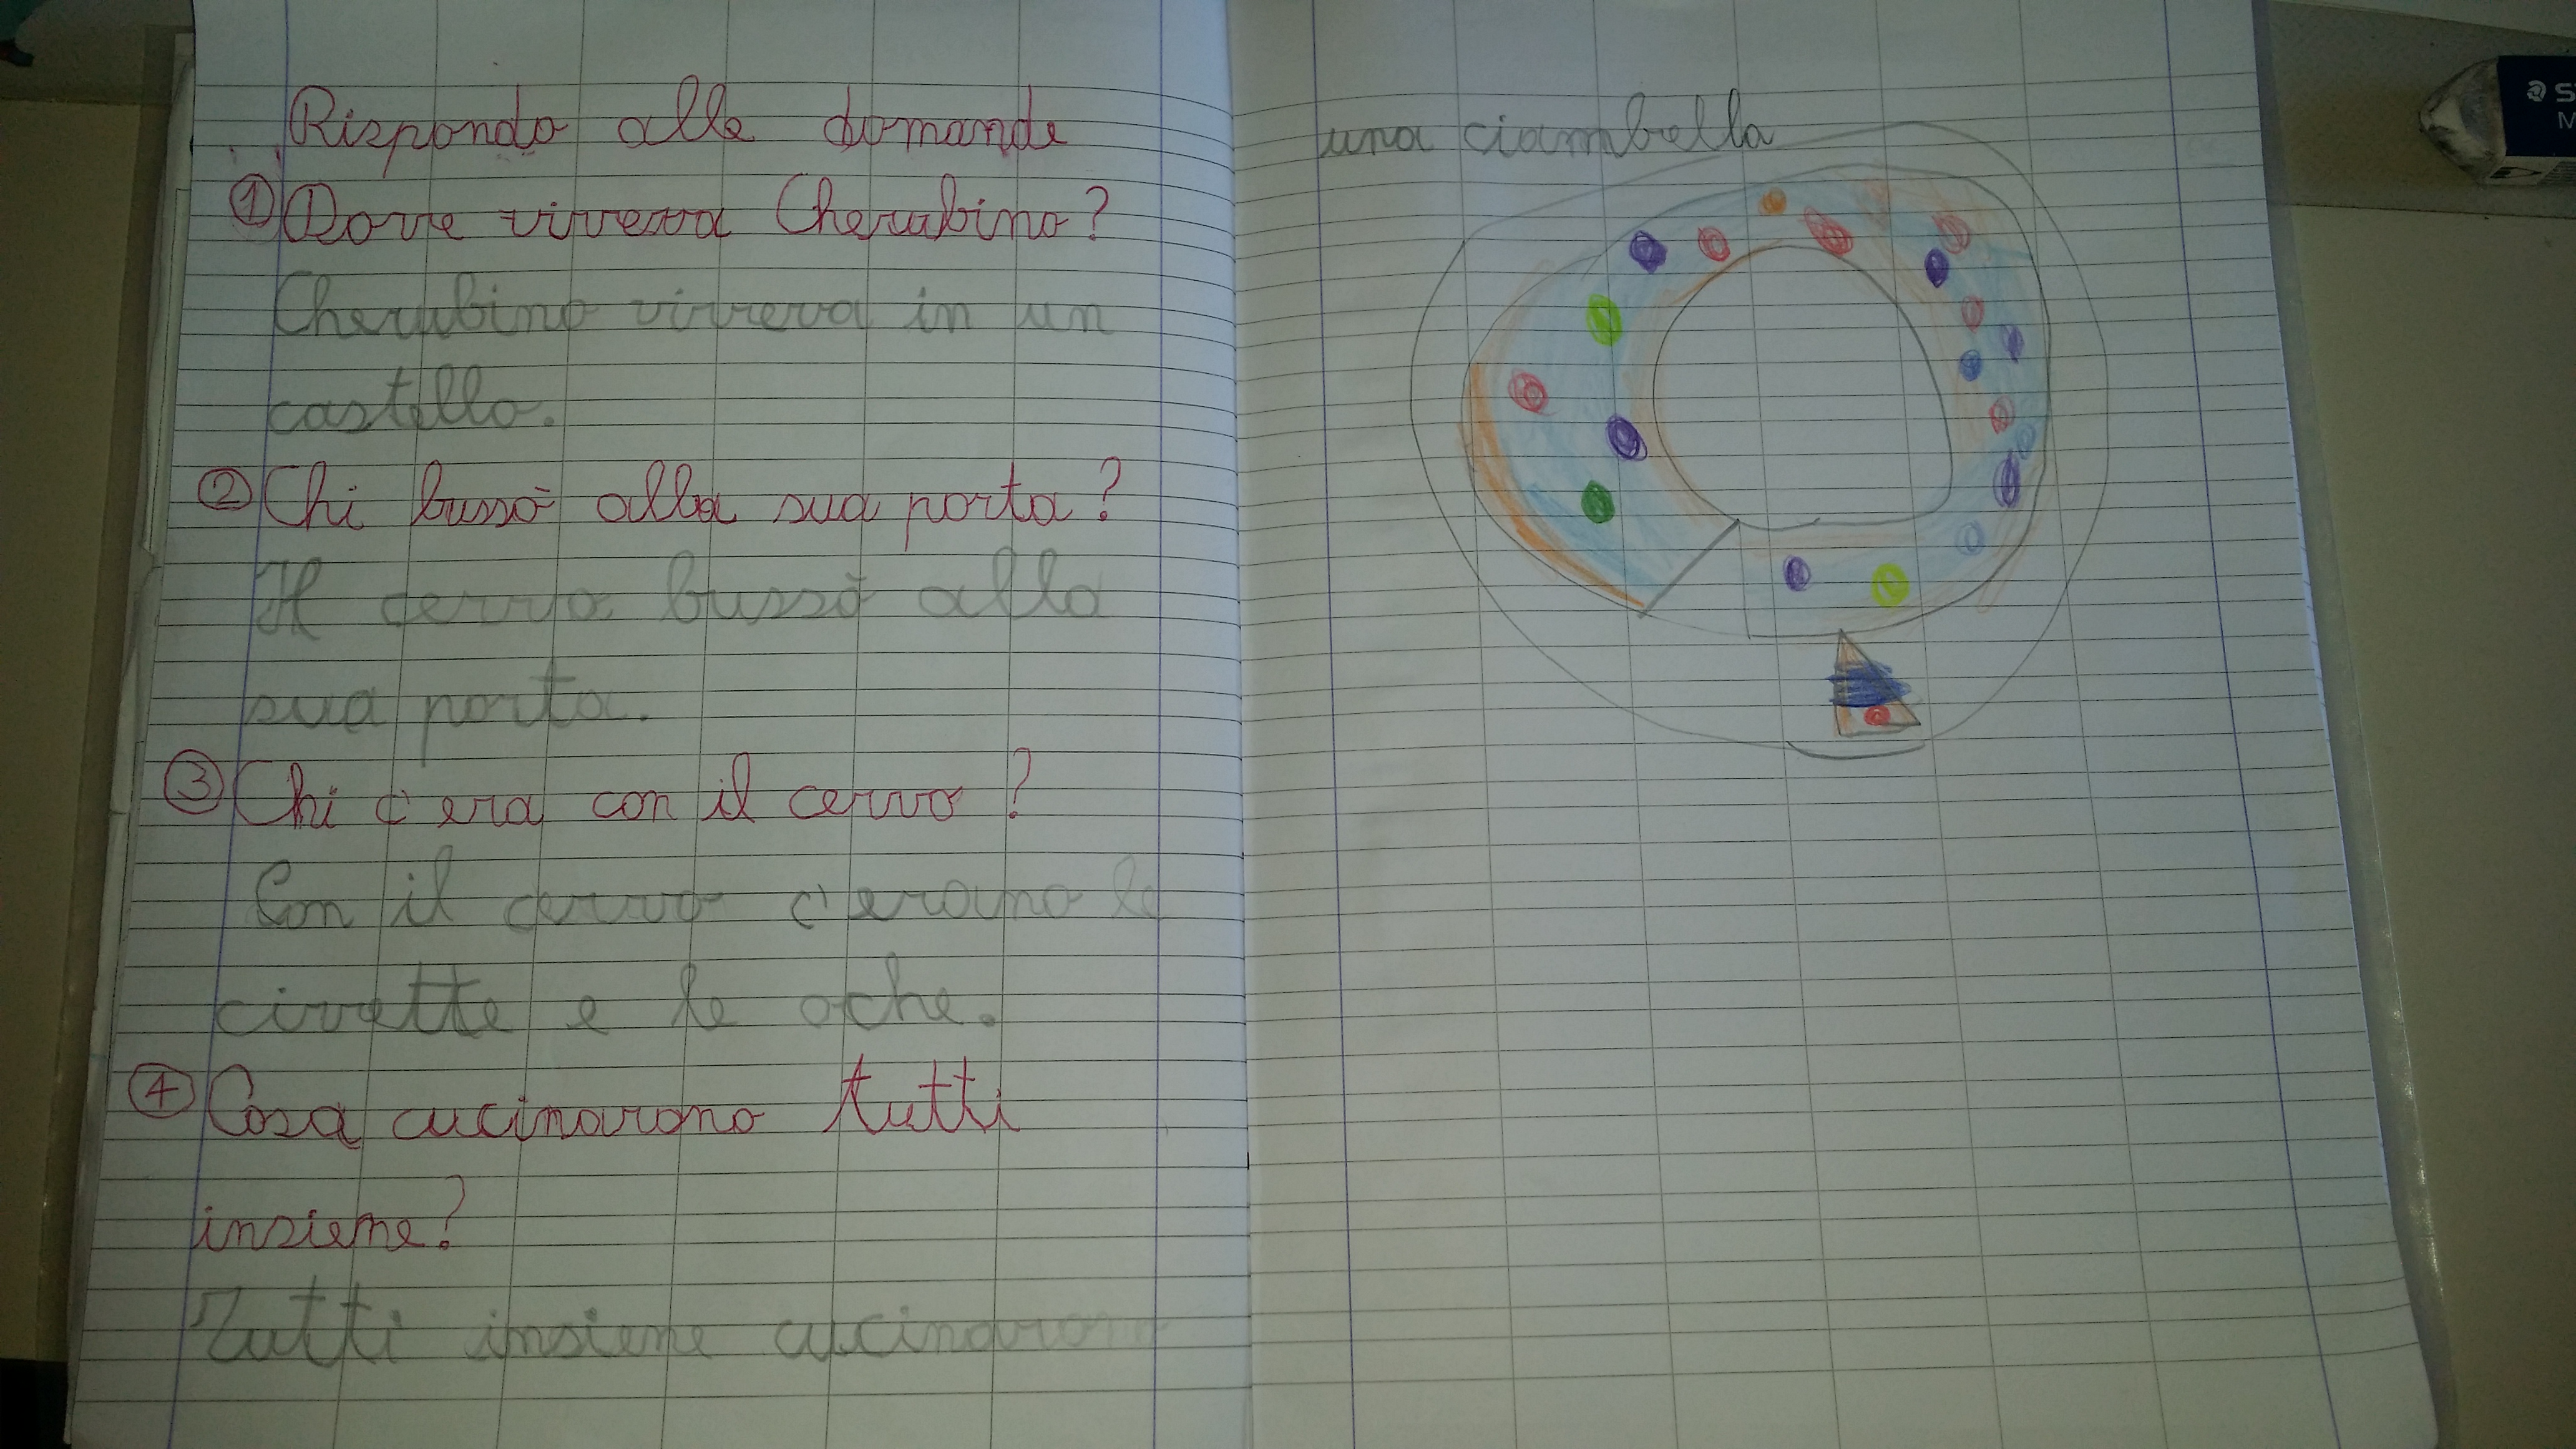 Rispondo alle domande
① Dove viveva Cherubino?
Cherubino viveva in un
castello.
② Chi bussò alla sua porta?
Il cervo bussò alla
sua porta.
③ Chi c'era con il cervo?
Con il cervo c'erano le
civette e le oche.
④ Cosa cucinarono tutti
insieme?
Tutti insieme cucinarono
una ciambella